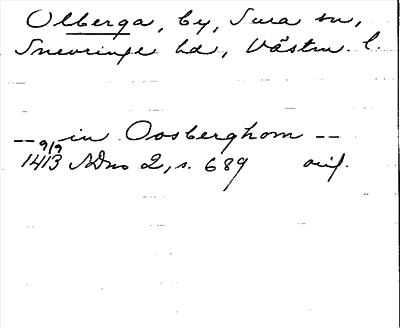 Olberga, by, Sura sn,
Snevringe hd, Västm. l.
-- in Oosberghom --
9/9
1413 SDns 2, s. 689 orig.